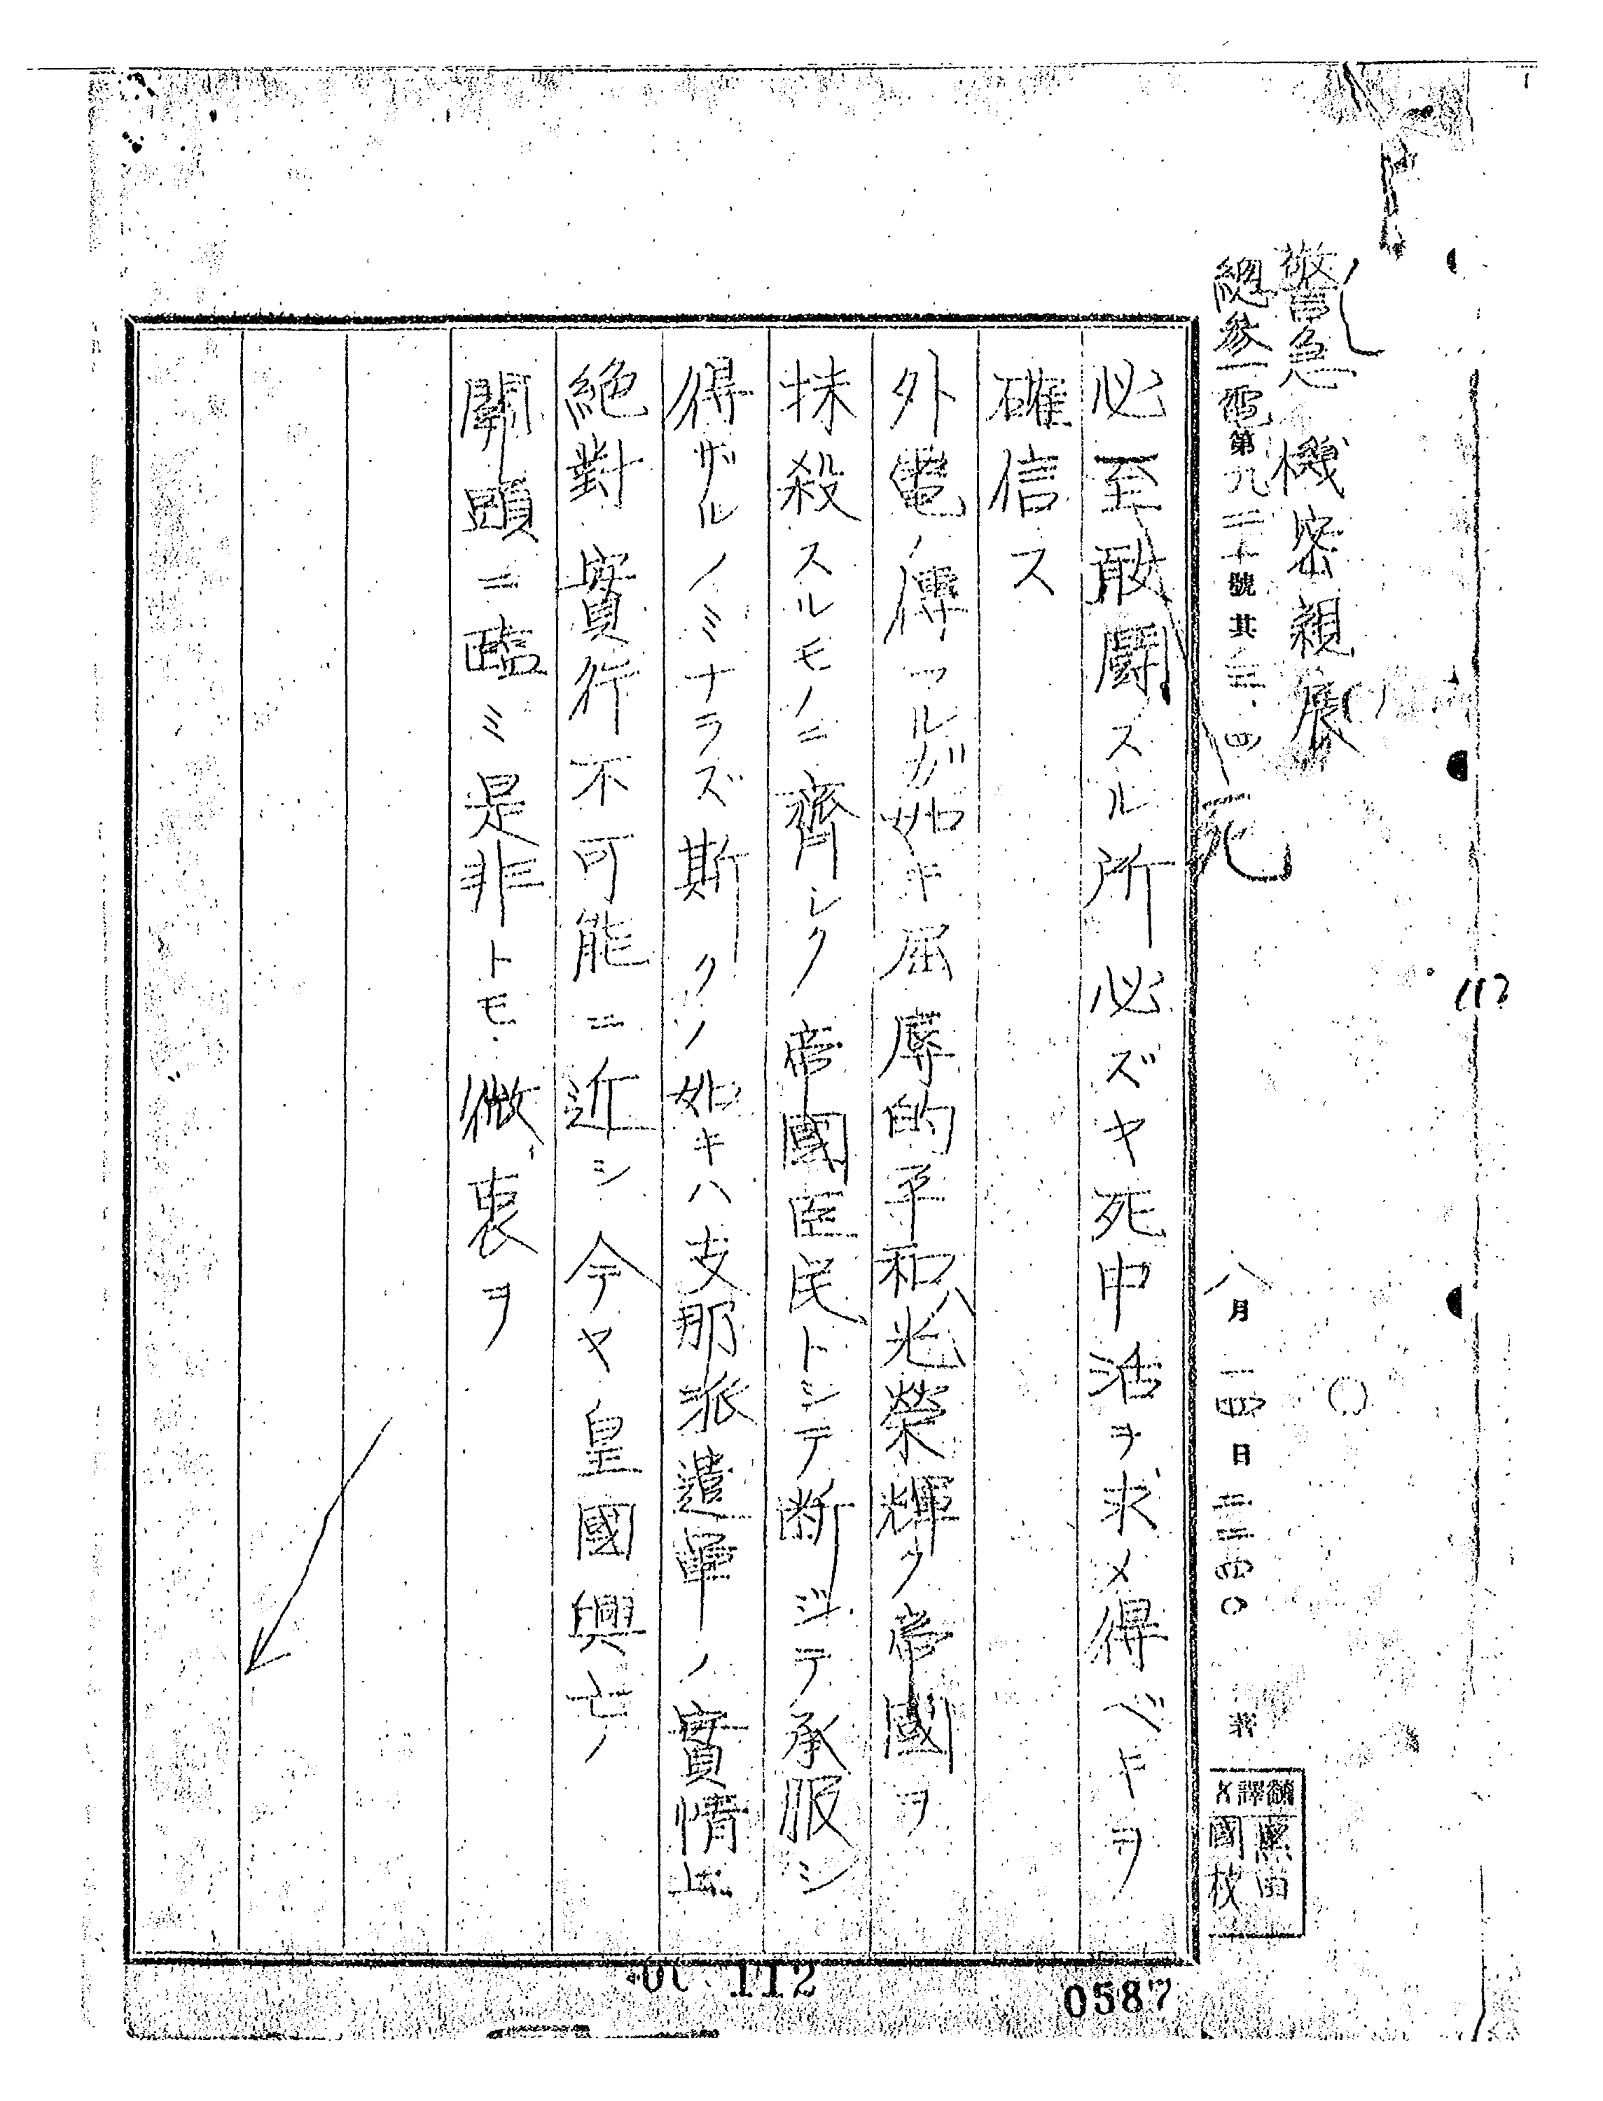 警急 機密親展
總參一電第九二十號其三、四
八月一四日 二三四〇 着
翻譯者
必至敢闘スル所必ズヤ死中活ヲ求メ得ベキヲ
確信ス
外電ノ傳フルガ如キ屈辱的平和ハ光榮輝ク帝國ヲ
抹殺スルモノニ齊シク帝國臣民トシテ断ジテ承服シ
得ザルノミナラズ斯クノ如キハ支那派遣軍ノ實情上
絶對實行不可能ニ近シ今ヤ皇國興亡ノ
關頭ニ臨ミ是非トモ微衷ヲ
112
0587